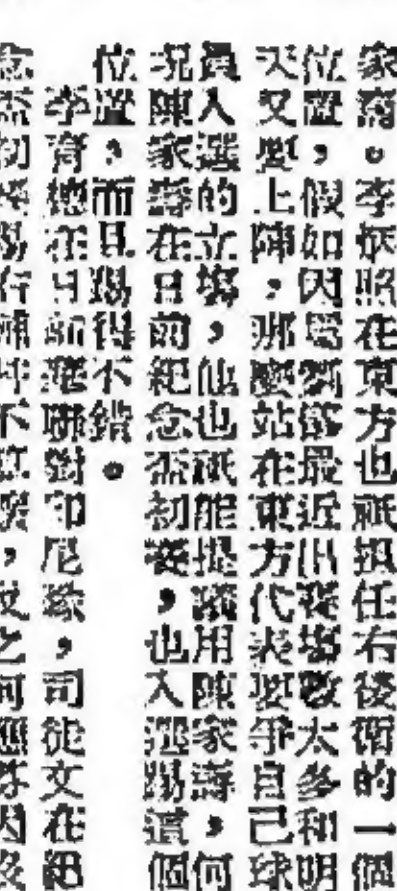 家齊。李炳照在東方也祇担任右後衛的一個
位置，假如因爲劉儀最近出賽塲數太多和明
天又要上陣，那麼站在東方代表要爭自己球
員入選的立塲，他也祇能提議用陳家壽，何
况陳家壽在日前紀念盃初賽，也入選踢這個
位置，而且踢得不錯。
李育德在日前港聯對印尼隊，司徒文在紀
念盃初